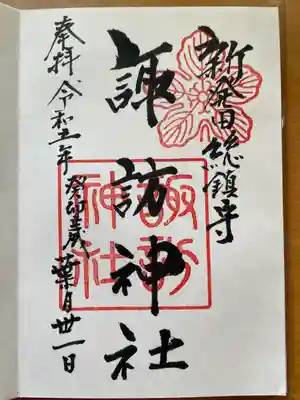 新発田総鎮守
諏訪神社
奉拝 令和五年 癸卯歳 葉月卅一日
諏訪神社